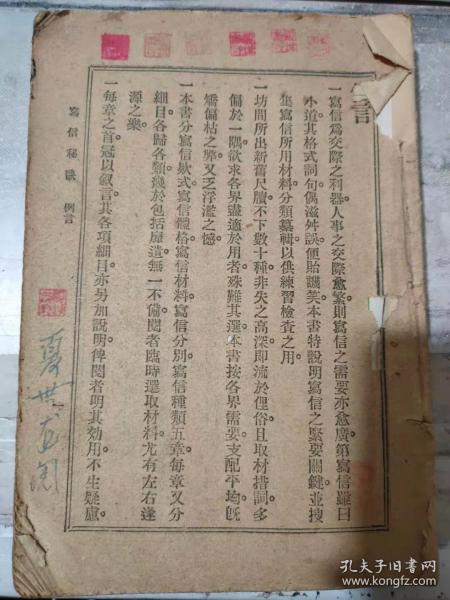 言
一寫信爲交際之利器人事之交際愈繁則寫信之需要亦愈廣第寫信雖曰
小道其格式詞句偶滋舛誤便貽譏笑本書特說明寫信之緊要關鍵並搜
集寫信所用材料分類纂輯以供練習檢查之用
一坊間所出新舊尺牘不下數十種非失之高深卽流於俚俗且取材措詞多
偏於一隅欲求各界盡適於用者殊難其選本書按各界需要支配平均旣
矯偏枯之弊又乏浮濫之憾
一本書分寫信欵式寫信體格寫信材料寫信分別寫信種類五章每章又分
細目各歸各類幾於包括靡遺無一不備閱者臨時選取材料尤有左右逢
源之樂
一每章之首冠以敘言其各項細目亦另加說明俾閱者明其効用不生疑慮
寫信秘訣 例言
孔夫子旧书网
www.kongfz.com